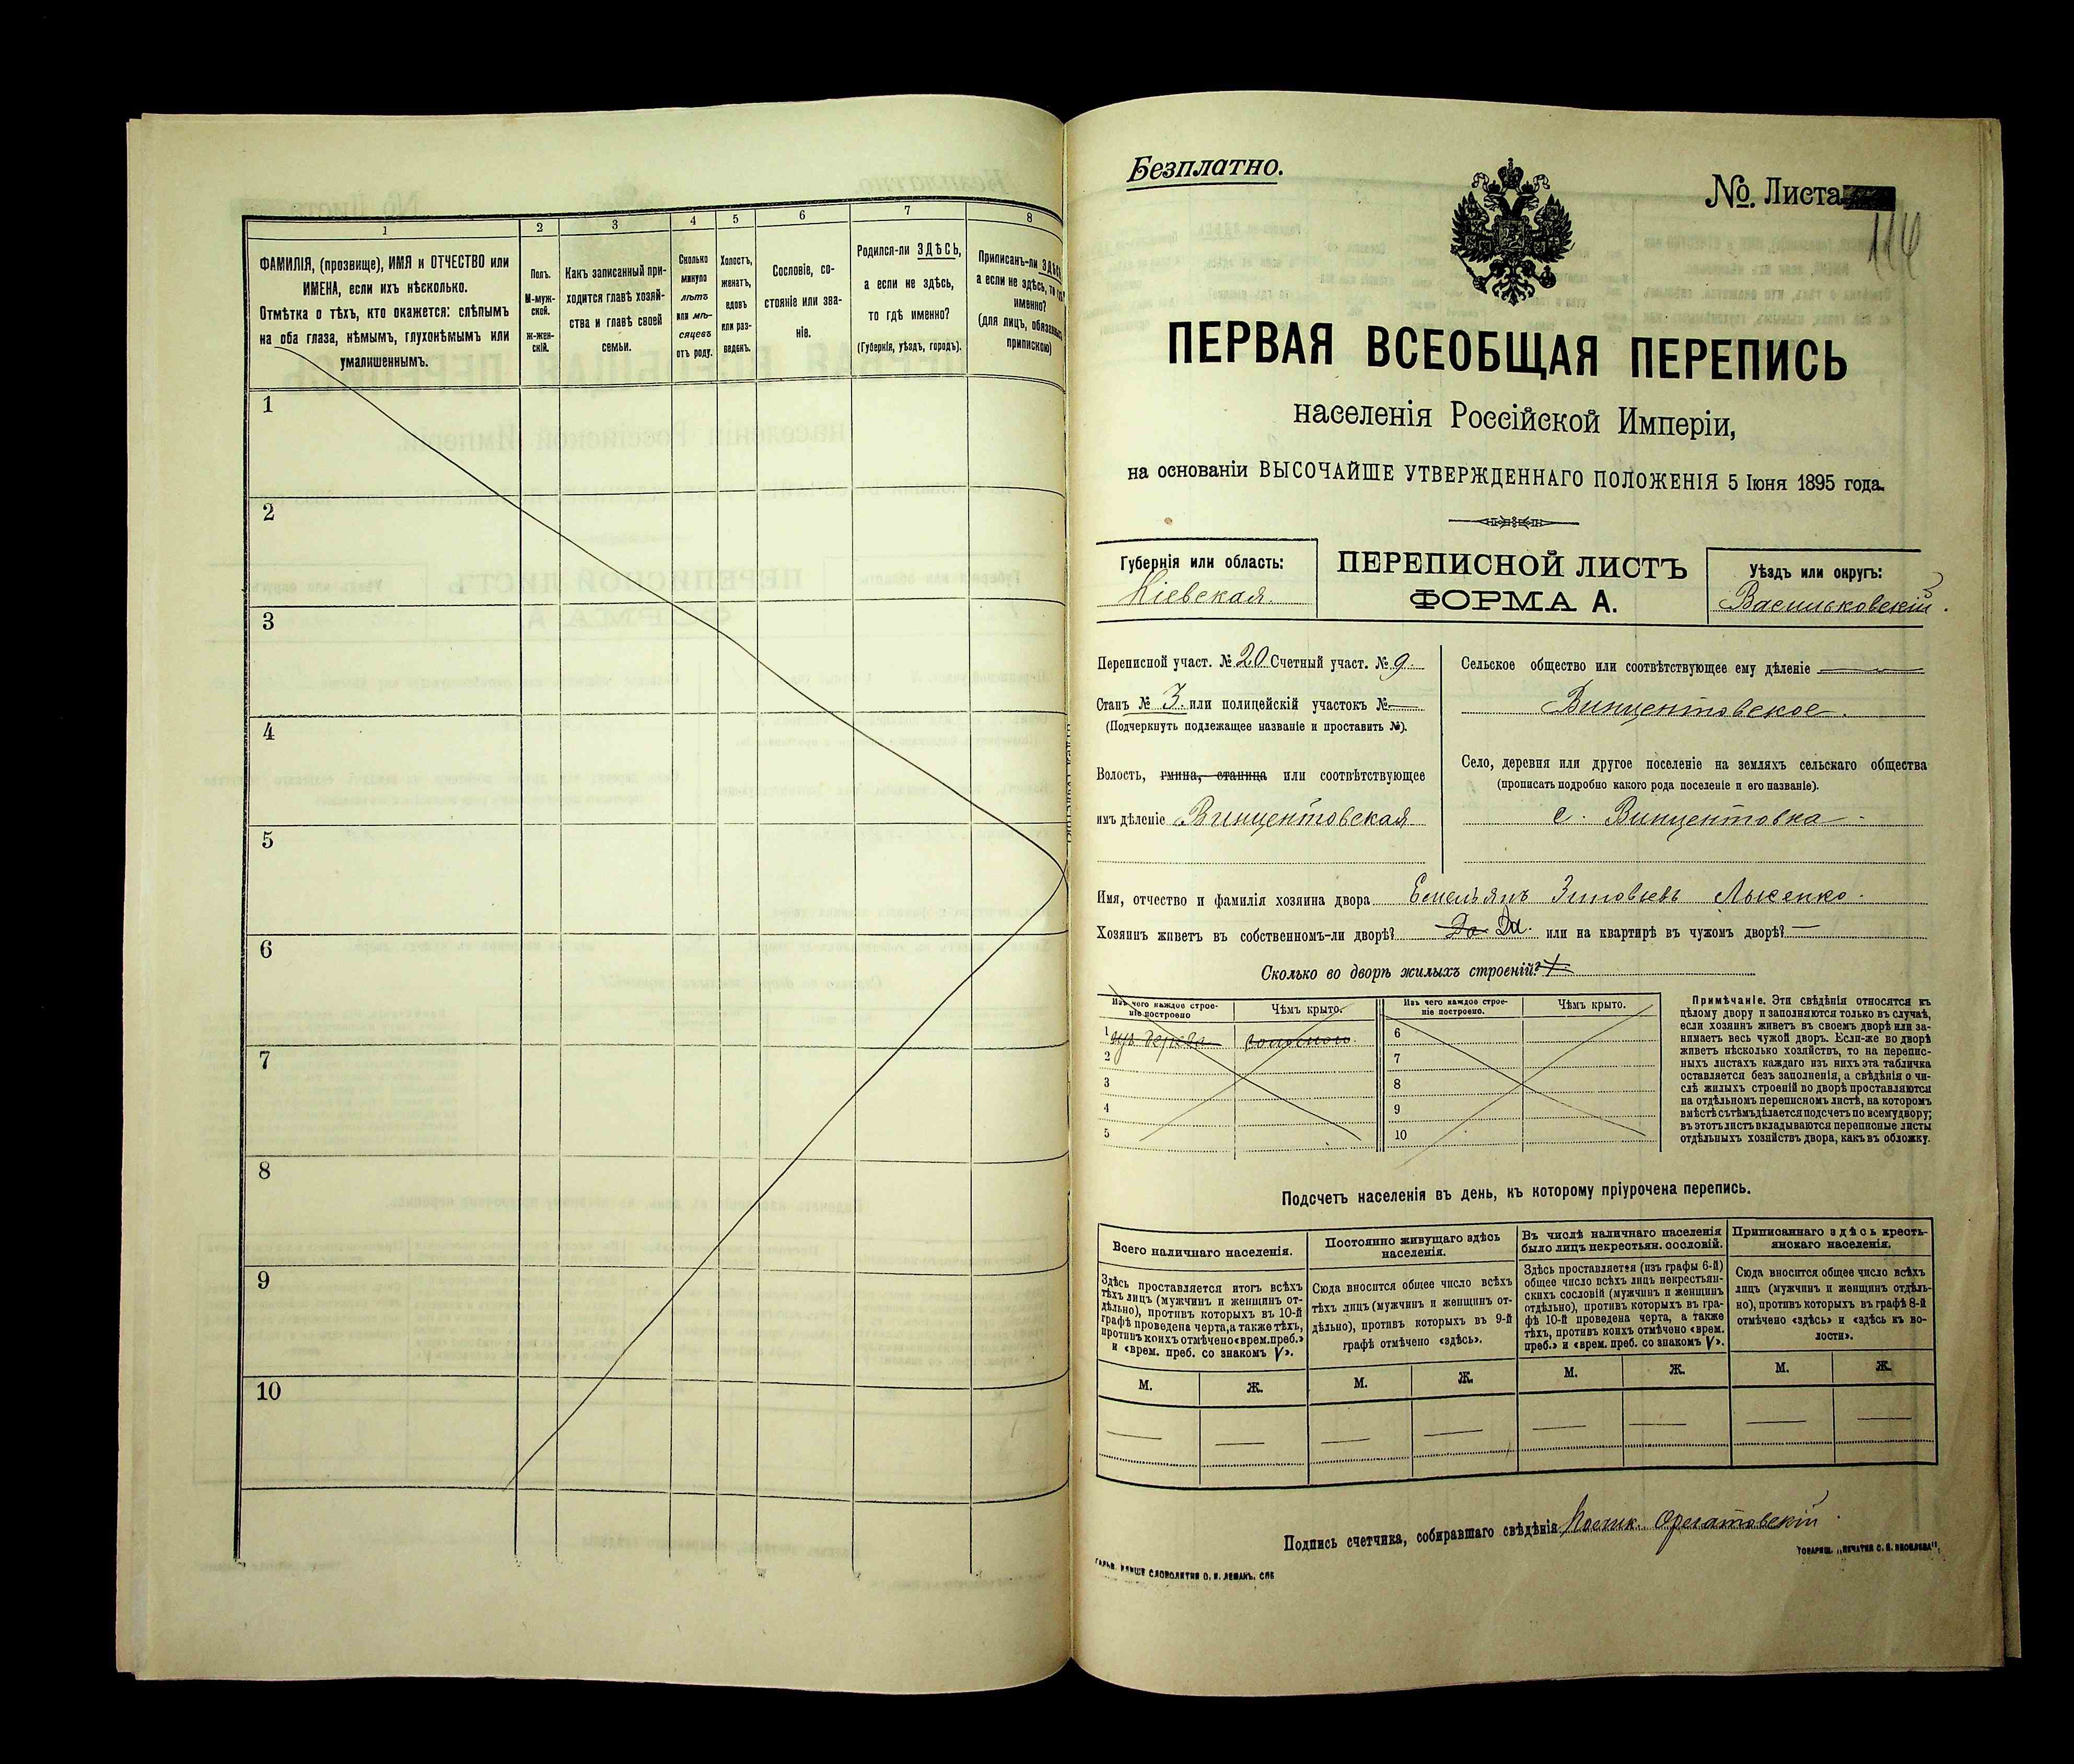 1
2
3
4
5
6
7
8
ФАМИЛІЯ, (прозвище), ИМЯ и ОТЧЕСТВО или
ИМЕНА, если ихъ нѣсколько.
Отмѣтка о тѣхъ, кто окажется: слѣпымъ
на оба глаза, нѣмымъ, глухонѣмымъ или
умалишеннымъ.
Полъ.
М-муж-
ской.
Ж-жен-
скій.
Какъ записанный при-
ходится главѣ хозяй-
ства и главѣ своей
семьи.
Сколько
минуло
лѣтъ
или мѣ-
сяцевъ
отъ роду.
Холостъ,
женатъ,
вдовъ
или раз-
веденъ.
Сословіе, со-
стояніе или зва-
ніе.
Родился-ли ЗДѢСЬ,
а если не здѣсь,
то гдѣ именно?
(Губернія, уѣздъ, городъ).
Приписанъ-ли ЗДѢСЬ
а если не здѣсь, то гдѣ
именно?
(для лицъ, обязанныхъ
припискою)
1
2
3
4
5
6
7
8
9
10
Безплатно.
№. Листа
ПЕРВАЯ ВСЕОБЩАЯ ПЕРЕПИСЬ
населенія Россійской Имперіи,
на основаніи ВЫСОЧАЙШЕ УТВЕРЖДЕННАГО ПОЛОЖЕНІЯ 5 Іюня 1895 года.
Губернія или область:
Кіевская.
ПЕРЕПИСНОЙ ЛИСТЪ
ФОРМА А.
Уѣздъ или округъ:
Васильковскій.
Переписной участ. № 20 Счетный участ. № 9.
Станъ № 3. или полицейскій участокъ № —
(Подчеркнуть подлежащее названіе и проставить №).
Волость, гмина, станица или соотвѣтствующее
имъ дѣленіе Винцентовская
Сельское общество или соотвѣтствующее ему дѣленіе
Винцентовское.
Село, деревня или другое поселеніе на земляхъ сельскаго общества
(прописать подробно какого рода поселеніе и его названіе).
с. Винцентовка
Имя, отчество и фамилія хозяина двора Емельянъ Зиновьевъ Лысенко.
Хозяинъ живетъ въ собственномъ-ли дворѣ? Да Да. или на квартирѣ въ чужомъ дворѣ? —
Сколько во дворѣ жилыхъ строеній?
Изъ чего каждое строе-
ніе построено
Чѣмъ крыто.
Изъ чего каждое строе-
ніе построено.
Чѣмъ крыто.
1 изъ дерева соломою
2
3
4
5
6
7
8
9
10
Примѣчаніе. Эти свѣдѣнія относятся къ
цѣлому двору и заполняются только въ случаѣ,
если хозяинъ живетъ въ своемъ дворѣ или за-
нимаетъ весь чужой дворъ. Если-же во дворѣ
живетъ нѣсколько хозяйствъ, то на перепис-
ныхъ листахъ каждаго изъ нихъ эта табличка
оставляется безъ заполненія, а свѣдѣнія о чи-
слѣ жилыхъ строеній во дворѣ проставляются
на отдѣльномъ переписномъ листѣ, на которомъ
вмѣстѣ съ тѣмъ дѣлается подсчетъ по всему двору;
въ этотъ листъ вкладываются переписные листы
отдѣльныхъ хозяйствъ двора, какъ въ обложку.
Подсчетъ населенія въ день, къ которому пріурочена перепись.
Всего наличнаго населенія.
Постоянно живущаго здѣсь
населенія.
Въ числѣ наличнаго населенія
было лицъ некрестьян. сословій.
Приписаннаго здѣсь кресть-
янскаго населенія.
Здѣсь проставляется итогъ всѣхъ
тѣхъ лицъ (мужчинъ и женщинъ от-
дѣльно), противъ которыхъ въ 10-й
графѣ проведена черта, а также тѣхъ,
противъ коихъ отмѣчено «врем. преб.»
и «врем. преб. со знакомъ V».
Сюда вносится общее число всѣхъ
тѣхъ лицъ (мужчинъ и женщинъ от-
дѣльно), противъ которыхъ въ 9-й
графѣ отмѣчено «здѣсь».
Здѣсь проставляется (изъ графы 6-й)
общее число всѣхъ лицъ некрестьян-
скихъ сословій (мужчинъ и женщинъ
отдѣльно), противъ которыхъ въ гра-
фѣ 10-й проведена черта, а также
тѣхъ, противъ коихъ отмѣчено «врем.
преб.» и «врем. преб. со знакомъ V».
Сюда вносится общее число всѣхъ
лицъ (мужчинъ и женщинъ отдѣль-
но), противъ которыхъ въ графѣ 8-й
отмѣчено «здѣсь» и «здѣсь къ во-
лости».
М. Ж. М. Ж. М. Ж. М. Ж.
— — — — — — — —
Подпись счетчика, собиравшаго свѣдѣнія
СЛОВОЛИТНИ О. И. ЛЕМАНЪ, СПБ
ТОВАРИЩ. „ПЕЧАТНЯ С. П. ЯКОВЛЕВА".